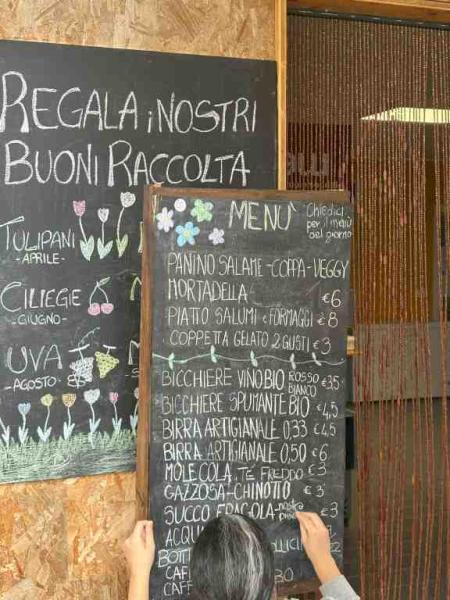 REGALA i NOSTRI
BUONI RACCOLTA
TULIPANI
-APRILE-
CILIEGE
-GIUGNO-
UVA
-AGOSTO-
MENÙ
Chiedici
per il menù
del giorno
PANINO SALAME-COPPA-VEGGY
MORTADELLA €6
PIATTO SALUMI e FORMAGGI €8
COPPETTA GELATO 2 GUSTI €3
BICCHIERE VINO BIO ROSSO BIANCO €3,5
BICCHIERE SPUMANTE BIO €4,5
BIRRA ARTIGIANALE 0,33 €4,5
BIRRA ARTIGIANALE 0,50 €6
MOLE COLA, TÈ FREDDO €3
GAZZOSA-CHINOTTO €3
SUCCO FRAGOLA-nostra €3
ACQUA
BOTT
CAF
CAFF